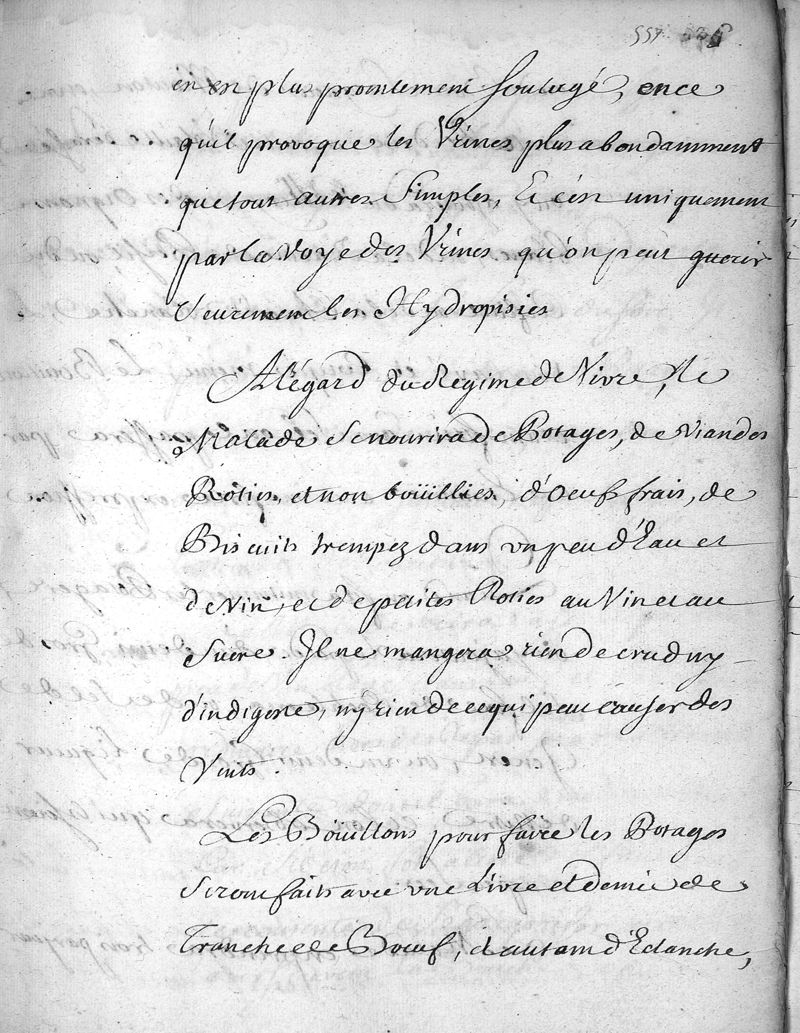 557
en est plus promtement soulagé, en ce
qu'il provoque les Vrines plus abondamment
que tout autres Simples, Et c'est uniquement
par la Voye des Vrines qu'on peut guerir
seurement les Hydropisies
A l'égard du Regime de Vivre, le
Malade se nourira de Potages, de Viandes
Roties, et non boüillies, d'Oeufs frais, de
Biscuits trempez dans un peu d'Eau et
de Vin, et de petites Roties au Vin et au
Sucre. Il ne mangera rien de crud ny
d'indigeste, ny rien de ce qui peut causer des
Vents.
Les Boüillons pour faire les Potages
seront faits avec une Livre et demie de
Tranche de Boeuf, d'autant d'Eclanche,